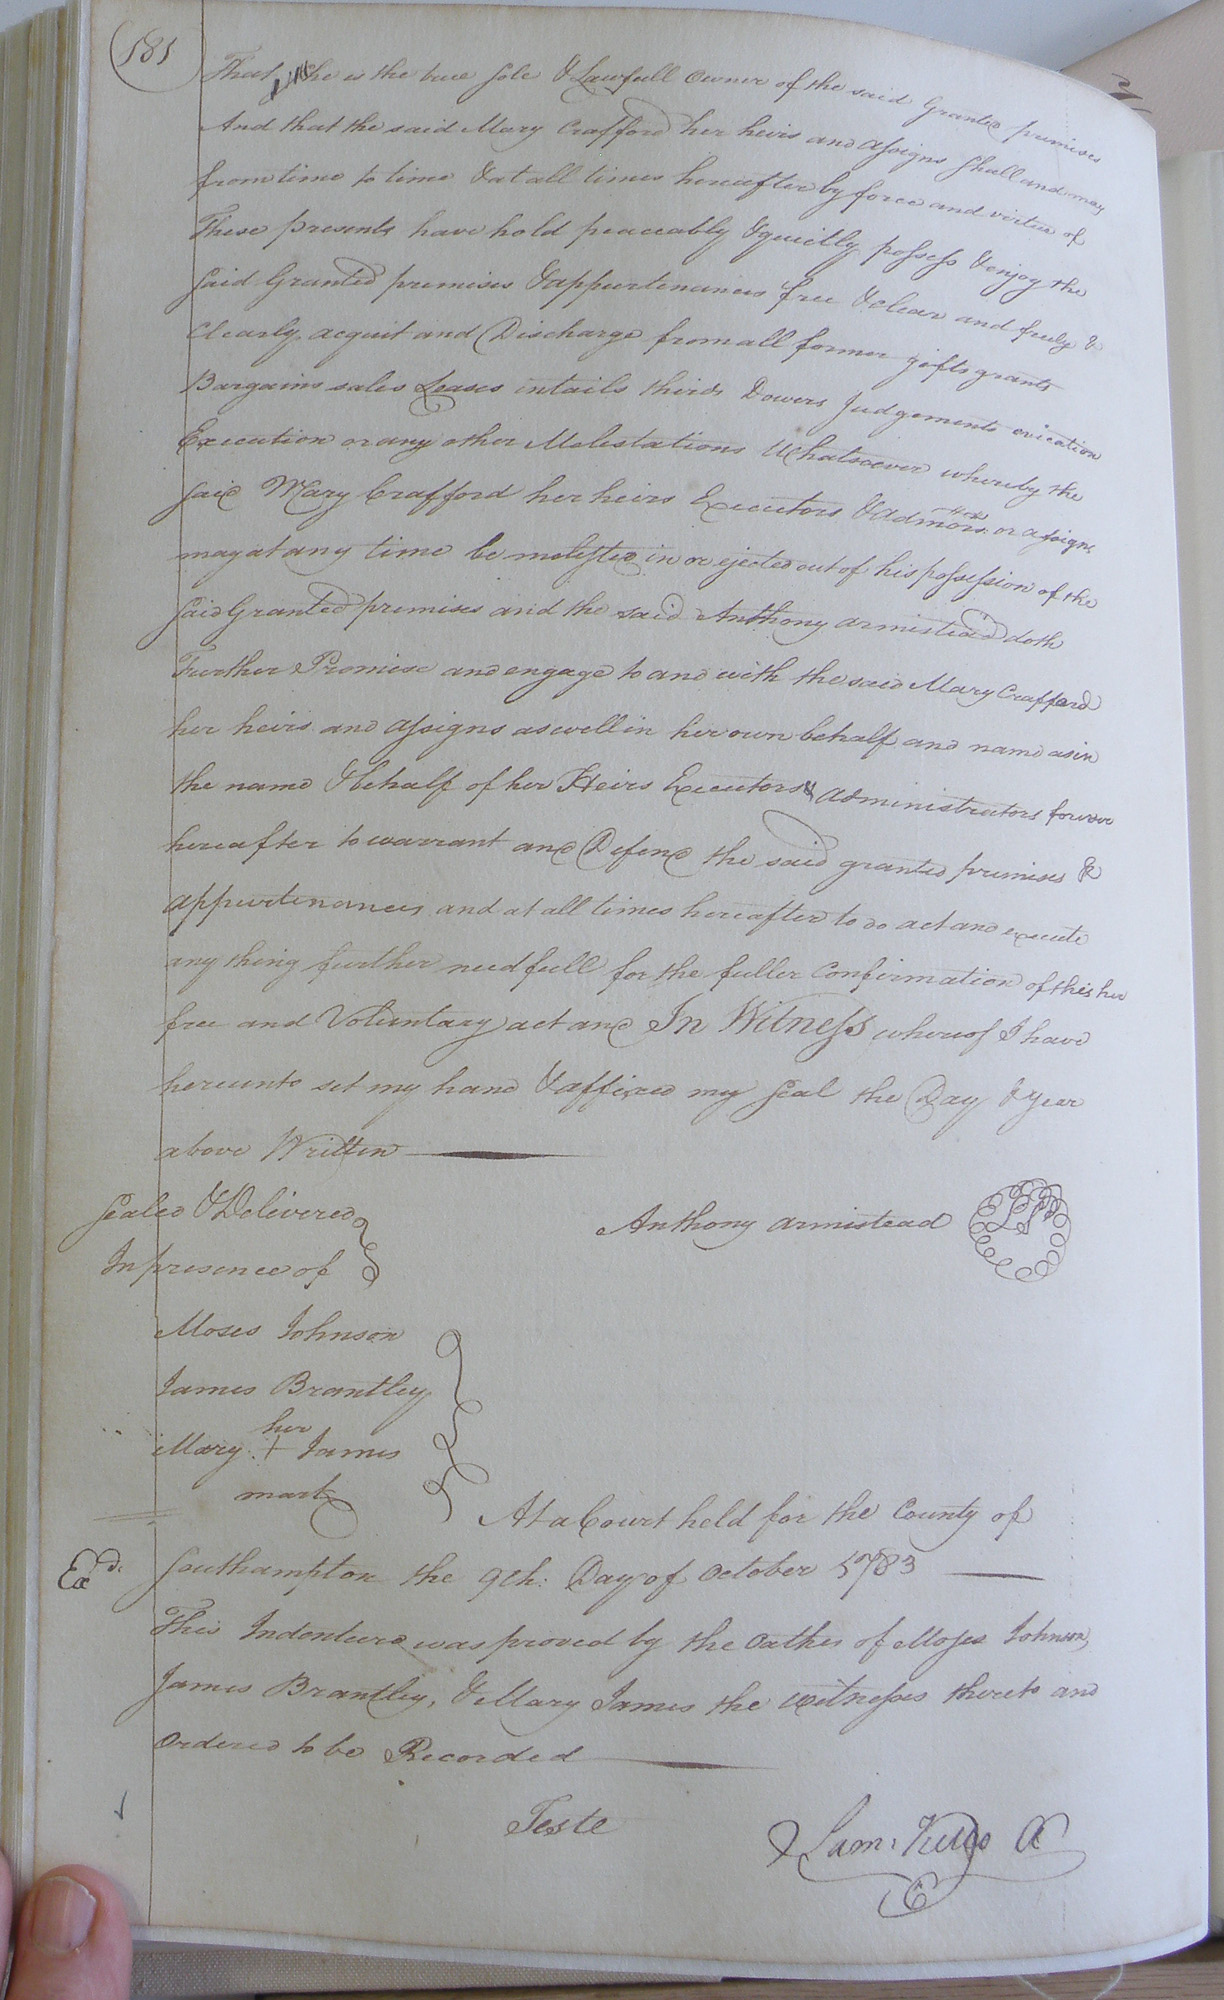 181
That he is the true sole & Lawfull Owner of the said Granted premises
And that the said Mary Crafford her heirs and assigns shall and may
from time to time & at all times hereafter by force and virtue of
These presents have hold peaceably & quietly possess & enjoy the
said Granted premises & appurtenances free & clear and freely &
Clearly acquit and Discharge from all former gifts grants
Bargains sales Leases intails thirds Dowers Judgements evication
Execution or any other Melestations Whatsoever whereby the
said Mary Crafford her heirs Executors & Admors. or assigns
may at any time be molested in or ejected out of his possession of the
said Granted premises and the said Anthony armistead doth
Further Promise and engage to and with the said Mary Crafford
her heirs and assigns as well in her own behalf and name as in
the name & behalf of her Heirs Executors & administrators forever
hereafter to warrant and Defend the said granted premises &
appurtenances and at all times hereafter to do act and execute
any thing further needfull for the fuller Confirmation of this her
free and Voluntary act and In Witness whereof I have
hereunto set my hand & affixed my Seal the Day & Year
above Written
Sealed & Delivered
In presence of
Anthony armistead LS
Moses Johnson
James Brantley
her
Mary + James
mark
At a Court held for the County of
Exd.
Southampton the 9th: Day of October 1783
This Indenture was proved by the Oathes of Moses Johnson,
James Brantley, & Mary James the witnesses thereto and
Ordered to be Recorded
Teste
Sam: Kello C